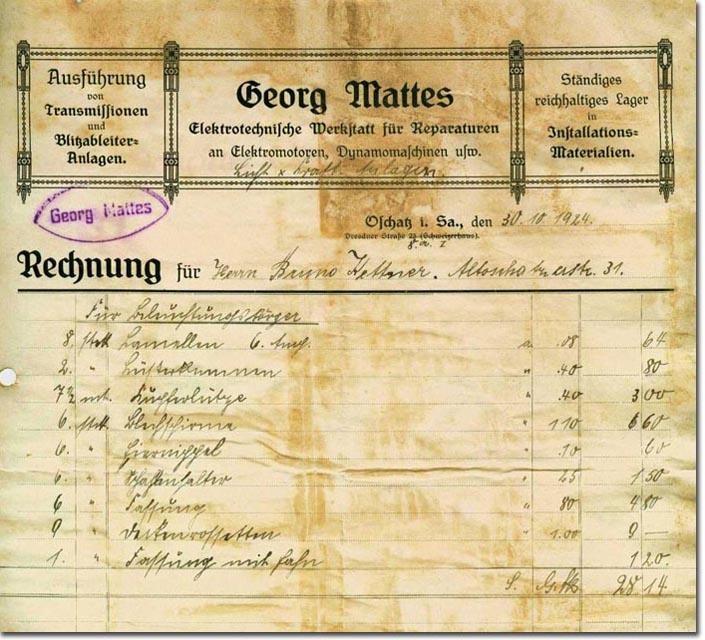 Ausführung
von
Transmissionen
und
Blitzableiter-
Anlagen.
Georg Mattes
Elektrotechnische Werkstatt für Reparaturen
an Elektromotoren, Dynamomaschinen usw.
Licht & Kraft Anlagen.
Ständiges
reichhaltiges Lager
in
Installations-
Materialien.
Georg Mattes
Oschatz i. Sa., den 30.10.1924.
Dresdner Straße 23 (Schweizerhaus).
Rechnung für Herrn Bruno Kettner. Altoschatzerstr. 31.
Für Beleuchtungskörper
8. Stck Lamellen 6. Amp. a .08 64
2. " Lüsterklemmen " .40 80
7½ mt. Kupferlitze " .40 3 00
6. Stck Blechschirme " 1 10 6 60
6. " Hiernippel " .10 60
6. " Schalenhalter " 25 1 50
6 " Fassung " 80 4 80
9 " Deckenrossetten " 1.00 9 —
1. " Fassung mit Hahn 1 20.
S. G.Mk 28 14